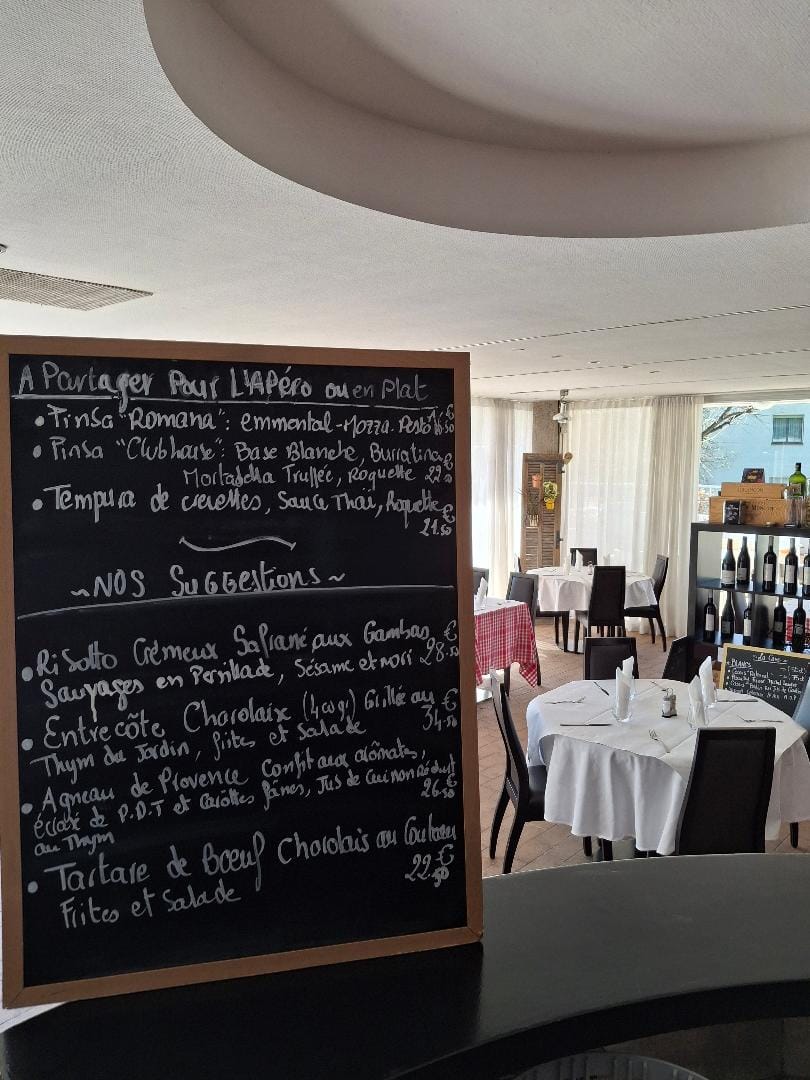 A Partager Pour L'APéro ou en Plat
• Pinsa "Romana": emmental-Mozza. Pesto
• Pinsa "Clubhouse": Base Blanche, Burratina
Mortadella Truffée, Roquette 22.50€
• Tempura de crevettes, Sauce Thaï, Roquette
21.50€
~NOS SuGGestions~
• Risotto Crémeux Safrané aux Gambas
Sauvages en Persillade, Sésame et nori 28.50€
• Entrecôte Charolaix (400g) Grillée au
Thym du Jardin, frites et Salade 34.50€
• Agneau de Provence Confit aux arômates,
écrasé de P.D.T et Carottes fânes, Jus de Cuisson réduit
au Thym 26.50€
• Tartare de Bœuf Charolais au Couteau
Frites et Salade 22.50€
La Cave
BLANC